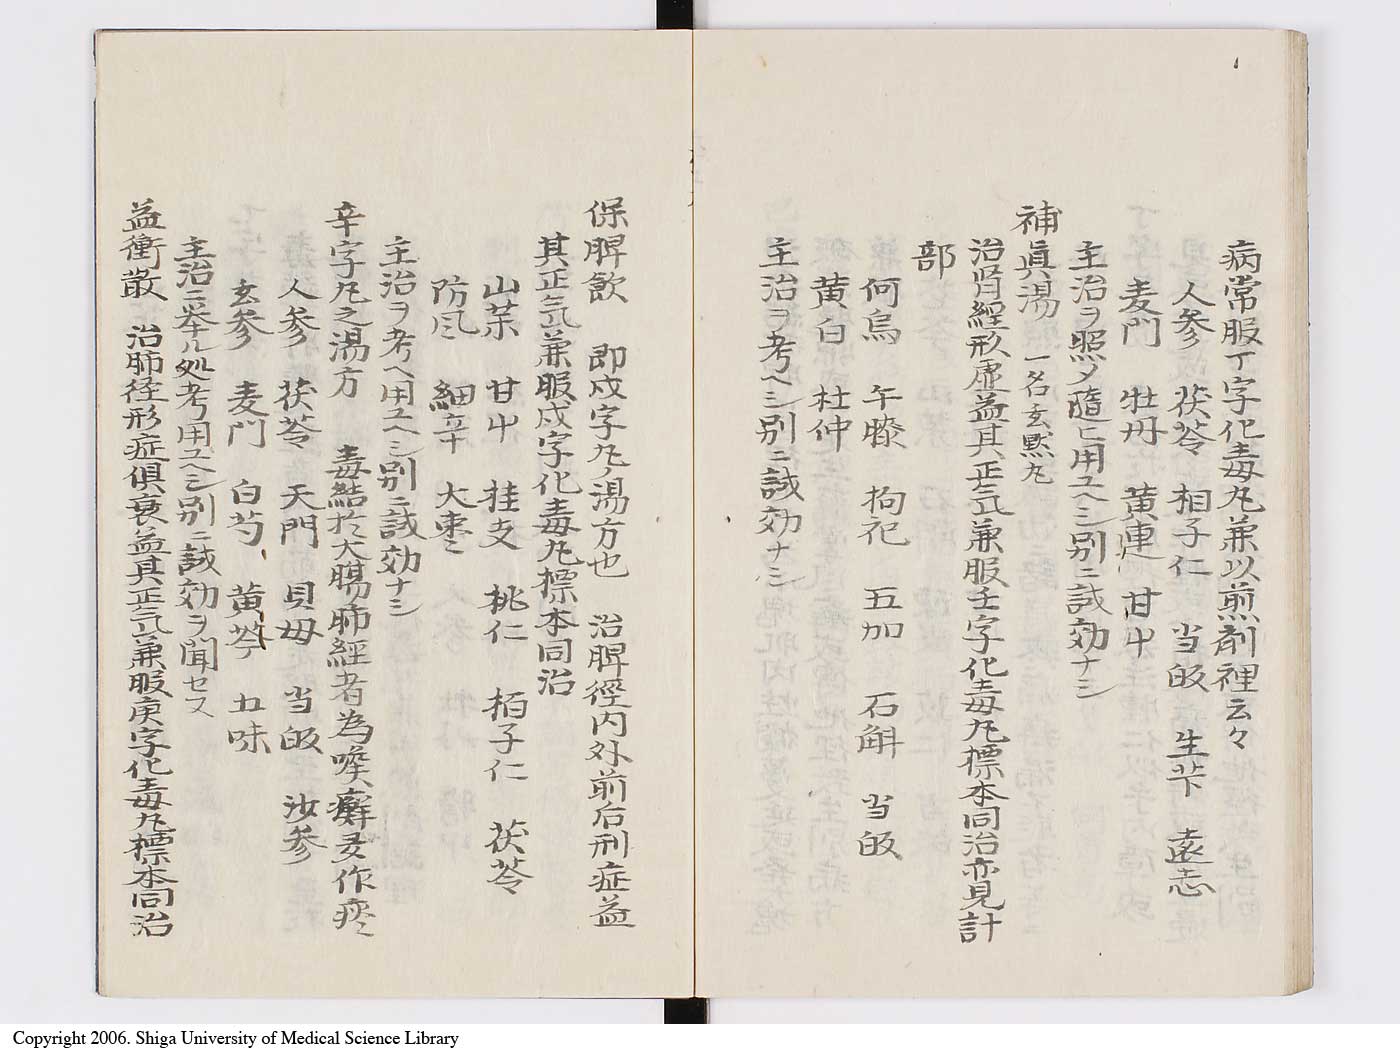 病常服丁字化毒丸兼以煎剤裡云々
人参　茯苓　柏子仁　当皈　生芐　遠志
麦門　牡丹　黄連　甘艸
主治ヲ照〆隨ヒ用ユヘシ別ニ誠効ナシ
補眞湯　一名玄黙丸
治肾經形虚益其正気兼服壬字化毒丸標本同治亦見計
部
何烏　午膝　拘杞　五加　石斛　当皈
黄白　杜仲
主治ヲ考ヘシ別ニ誠効ナシ
保脾飲　即戍字丸ノ湯方也　治脾徑内外前后刑症益
其正気兼服戍字化毒丸標本同治
山茱　甘艸　桂支　桃仁　栢子仁　茯苓
防風　細辛　大棗
主治ヲ考ヘ用ユヘシ別ニ誠効ナシ
辛字丸之湯方　毒結於大腸肺經者為喉癬又作疼
人参　茯苓　天門　貝母　当皈　沙参
玄参　麦門　白芍　黄芩　五味
主治ニ挙ル処考ヘ用ユヘシ別ニ誠効ヲ聞セス
益衝散　治肺径形症倶衰益其正気兼服庚字化毒丸標本同治
Copyright 2006. Shiga University of Medical Science Library